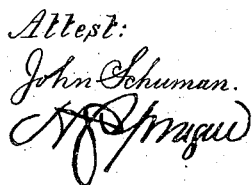 Attest:
John Schuman.
H J Sprague